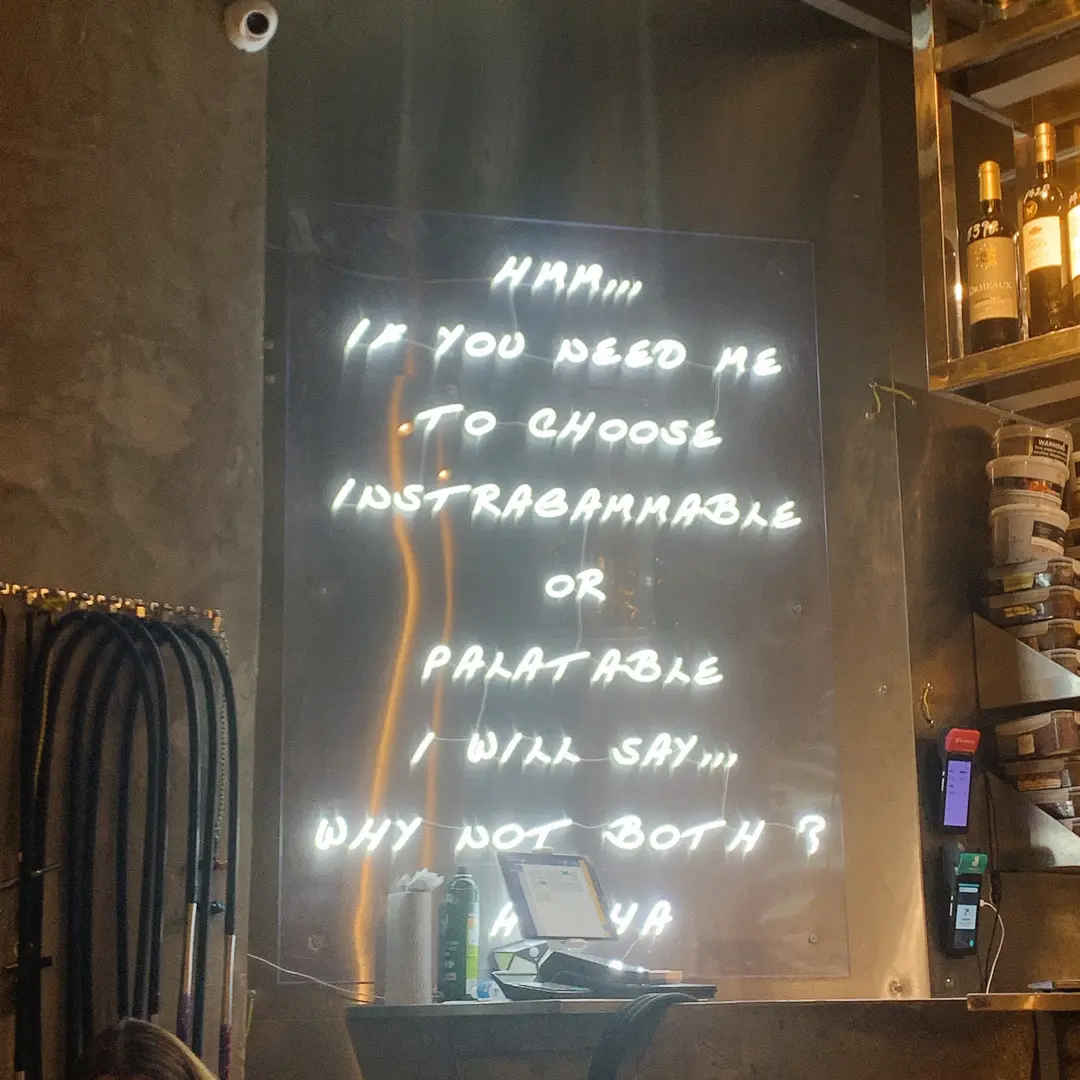 HMM...
IF YOU NEED ME
TO CHOOSE
INSTRAGAMMABLE
OR
PALATABLE
I WILL SAY...
WHY NOT BOTH ?
ORMEAUX
WARNING